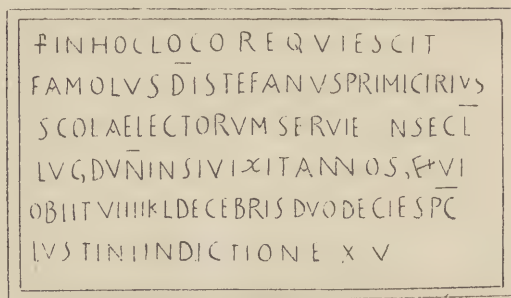 †INHOCLLOCO REQVIESCIT
FAMOLVS D̅I STEFANVSPRIMICIRIVS
SCOLAELECTORVM SERVIE NSECL̅
LVG,DVN̅INSIVIXITANNOS,
OBIITVIIIIKLDECEBRIS DVODECIESPC̅
IVSTINIINDICTIONE X V